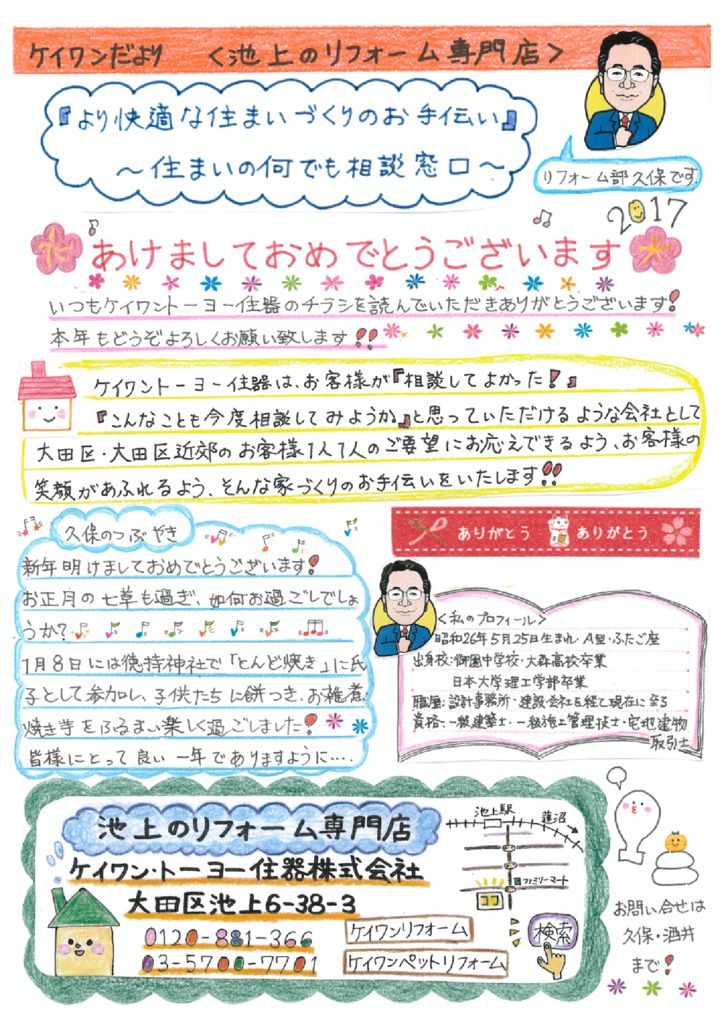 ケイワンだより 〈池上のリフォーム専門店〉
『より快適な住まいづくりのお手伝い』
～住まいの何でも相談窓口～
リフォーム部久保です
2017
あけましておめでとうございます
いつもケイワントーヨー住器のチラシを読んでいただきありがとうございます!
本年もどうぞよろしくお願い致します!!
ケイワントーヨー住器は、お客様が『相談してよかった!』
『こんなことも今度相談してみようか』と思っていただけるような会社として
大田区・大田区近郊のお客様1人1人のご要望にお応えできるよう、お客様の
笑顔があふれるよう、そんな家づくりのお手伝いをいたします!!
久保のつぶやき
新年明けましておめでとうございます!
お正月の七草も過ぎ、如何お過ごしでしょ
うか?
1月8日には徳持神社で「とんど焼き」に氏
子として参加し、子供たちに餅つき、お雑煮
焼き芋をふるまい楽しく過ごしました!
皆様にとって良い一年でありますように・・・・
ありがとう ありがとう
〈私のプロフィール〉
昭和26年5月25日生まれ・A型・ふたご座
出身校:御園中学校・大森高校卒業
日本大学理工学部卒業
職歴:設計事務所・建設会社を経て現在に至る
資格:一級建築士・一級施工管理技士・宅地建物
取引士
池上のリフォーム専門店
ケイワン・トーヨー住器株式会社
大田区池上6-38-3
0120-881-366
03-5700-7701
ケイワンリフォーム
ケイワンペットリフォーム
検索
池上駅
蓮沼
ファミリーマート
ココ
お問い合せは
久保・酒井
まで!